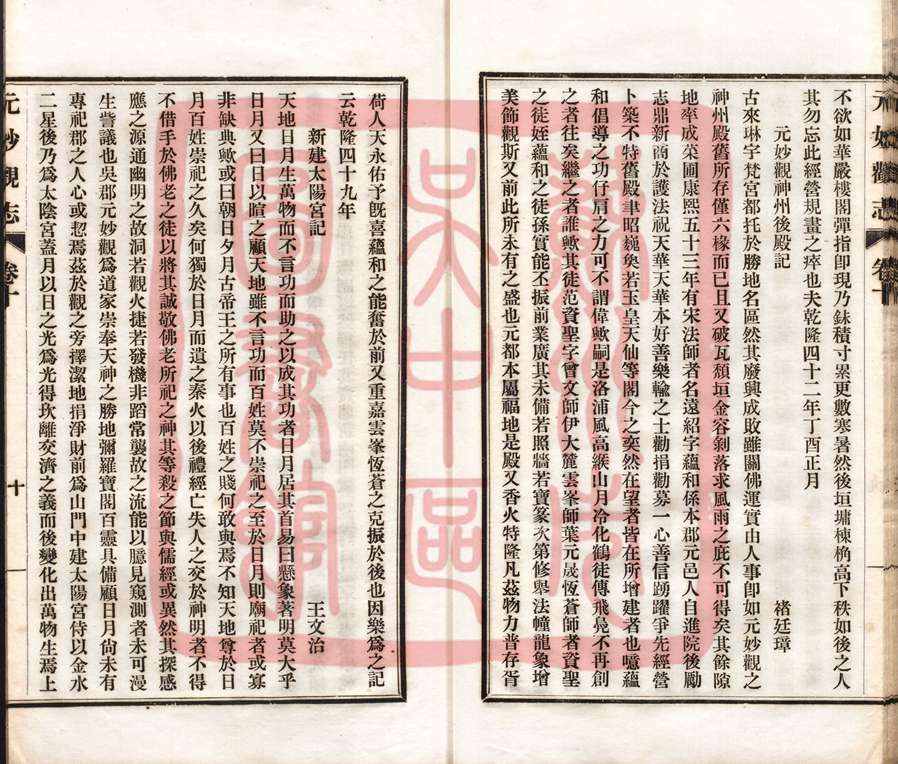 不欲如華嚴樓閣彈指即現乃銖積寸累更數寒暑然後垣墉棟桷高下秩如後之人
其勿忘此經營規畫之瘁也夫乾隆四十二年丁酉正月
元妙觀神州後殿記
褚廷璋
古來琳宇梵宮都托於勝地名區然其廢興成敗雖關佛運實由人事即如元妙觀之
神州殿舊所存僅六椽而已且又破瓦頹垣金容剝落求風雨之庇不可得矣其餘隙
地率成菜圃康熙五十三年有宋法師者名遠紹字蘊和係本郡元邑人自進院後勵
志鼎新商於護法祝天華天華本好善樂輸之士勸捐勸募一心善信踴躍爭先經營
卜築不特舊殿聿昭巍奐若玉皇天仙等閣今之奕然在望者皆在所增建者也噫蘊
和倡導之功仔肩之力可不謂偉歟嗣是洛浦風高緱山月冷化鶴徒傳飛鳧不再創
之者往矣繼之者誰歟其徒范資聖字會文師伊大麓雲峯師葉元晟恆蒼師者資聖
之徒姪蘊和之徒孫實能丕振前業廣其未備若照牆若寶篆次第修舉法幢龍象增
美飾觀斯又前此所未有之盛也元都本屬福地是殿又香火特隆凡茲物力普存胥
荷人天永佑予既喜蘊和之能奮於前又重嘉雲峯恆蒼之克振於後也因樂爲之記
云乾隆四十九年
新建太陽宮記
王文治
天地日月生萬物而不言功而助之以成其功者日月居其首易曰懸象著明莫大乎
日月又曰日以暄之顧天地雖不言功而百姓莫不崇祀之至於日月則廟祀者或寡
非缺典歟或曰朝日夕月古帝王之所有事也百姓之賤何敢與焉不知天地尊於日
月百姓崇祀之久矣何獨於日月而遺之秦火以後禮經亡失人之交於神明者不得
不借手於佛老之徒以將其誠敬佛老所祀之神其等殺之節與儒經或異然其探感
應之源通幽明之故洞若觀火捷若發機非蹈常襲故之流能以臆見窺測者未可漫
生訾議也吳郡元妙觀爲道家崇奉天神之勝地彌羅寶閣百靈具備顧日月尙未有
專祀郡之人心或恝焉茲於觀之旁擇潔地捐淨財前爲山門中建太陽宮侍以金水
二星後乃爲太陰宮蓋月以日之光爲光得坎離交濟之義而後變化出萬物生焉上
元妙觀志
卷十
十